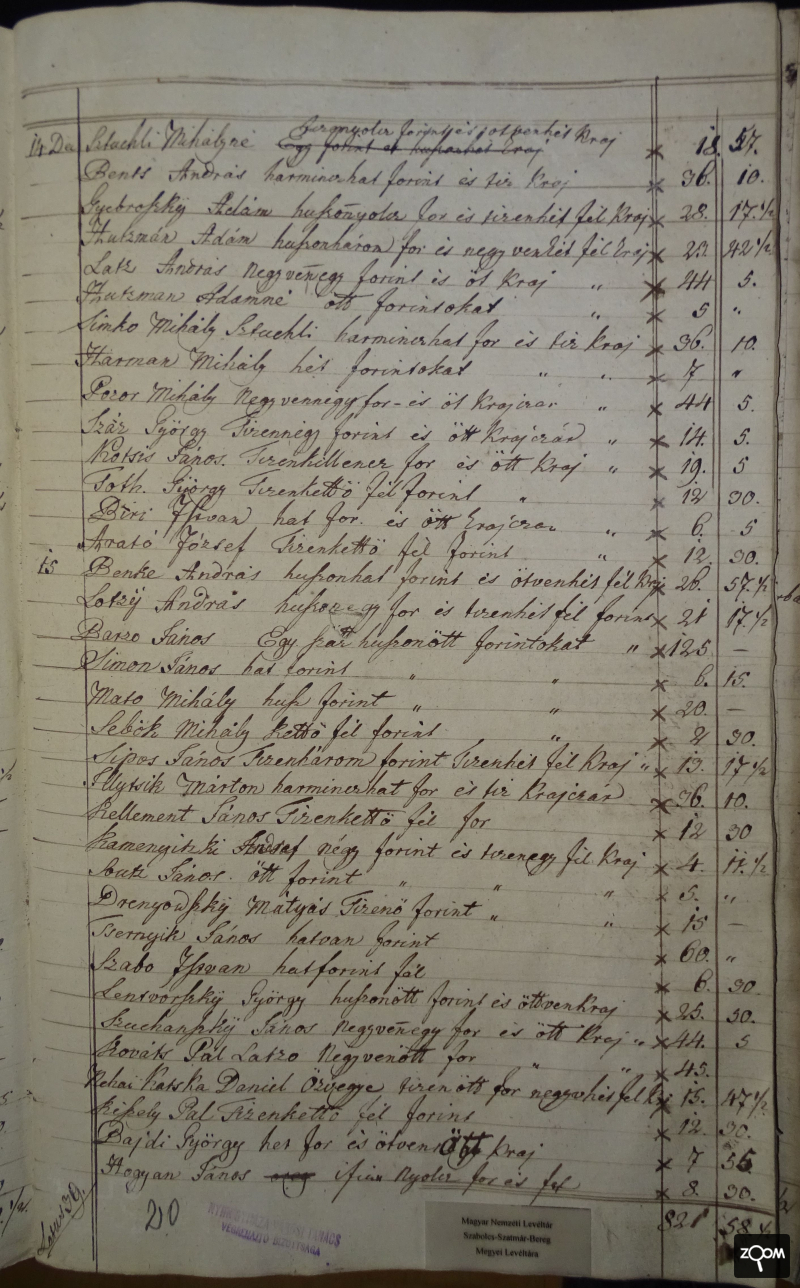 14 De Sztuchli Mihályné tizennyolcz forint és ötvenhét Kraj x 18. 57.
Egy forint és huszonhat Kraj
Bents András harminczhat forint és tiz Kraj x 36. 10.
Gyebroszkÿ Adám huszonnyolcz for és tizenhét fél Kraj x 28. 17.1/2
Hutzmán Adám huszonhárom for és negyvenkét fél Kraj x 23. 42 1/2
Latz András Negyvennegy forint és öt Kraj „ x 44 5.
Hutzman Adámné ött forintokat „ x 5 „
Simko Mihály Sztuchli harminczhat for és tiz Kraj x 36. 10.
Harman Mihály hét forintokat „ „ x 7 „
Pozor Mihály Negyvennégy for - és öt Krajczar „ x 44 5.
Száz György Tizennégy forint és ött Krajczár „ x 14. 5.
Kotsis János. Tizenkillencz for és ött Kraj „ x 19. 5
Toth György Tizenkettö fél forint „ x 12 30.
Biri Istvan hat for. és ött Krajczar „ x 6. 5
Arató József Tizenkettö fél forint „ x 12. 30.
15 Benke András huszonhat forint és ötvenhét fél Kraj x 26. 57.1/2
Lotzÿ András huszonegy for és tizenhét fél forint x 21 17.1/2
Barzo János Egy szátt huszonött forintokat „ x 125 —
Simon János hat forint „ „ x 6. 15.
Mato Mihály husz forint „ „ x 20. —
Sebök Mihály Kettö fél forint „ x 2 30.
Sipos János Tizenhárom forint Tizenhét fél Kraj „ x 13. 17 1/2
Illytsik Márton harminczhat for és tiz Krajczár x 36. 10.
Kellement János Tizenkettö fél for x 12 30
Kamenyitzki András négy forint és tizenegy fél Kraj x 4. 11.1/2
János. ött forint „ „ „ x 5. „
Drenyowszkÿ Mátyás Tizenö forint „ „ x 15 —
Tsernyik János hatvan forint x 60. „
Szabo Istvan hat forint fél x 6. 30
Lensvorszkÿ György huszonött forint és öttven Kraj x 25. 30.
Szuchanszkÿ János Negyvennegy for és ött Kraj „ x 44. 5
Kováts Pál Latzo Negyvenött for „ „ x 45.
Néhai Katska Daniel Özvegye tizenött for negyvhét fél Kraj x 15. 47 1/2
Kihely Pál Tizenkettö fél forint x 12. 30.
Bajdi György het for és ötvenött Kraj x 7 55
Hogyan János ifiu Nyolcz for és fél x 8. 30.
Latus 39.
20
821 58 1/2
NYIREGYHÁZA VÁROSI TANÁCS
VÉGREHAJTÓ BIZOTTSÁGA
Magyar Nemzeti Levéltár
Szabolcs-Szatmár-Bereg
Megyei Levéltára
ZOOM